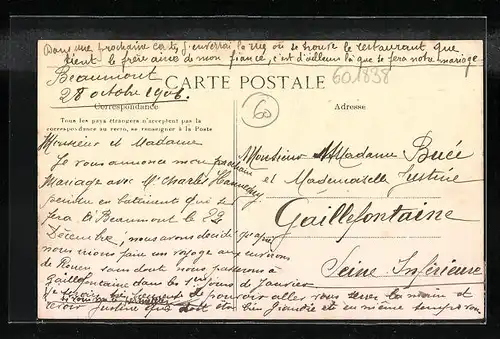 Dans une prochaine carte j'enverrai la vue où se trouve le restaurant que
tient le frère ainé de mon fiancé, c'est d'ailleurs là que se fera notre mariage
Beaumont
28 octobre 1906.
CARTE POSTALE
601838
60
Correspondance
Adresse
Tous les pays étrangers n'acceptent pas la
correspondance au recto, se renseigner à la Poste
Monsieur et Madame
Je vous annonce mon prochain
mariage avec Mr Charles
peintre en bâtiment qui se
fera à Beaumont le 22
Décembre, nous avons décidé qu'après
nous irions faire un voyage aux environs
de Rouen sans doute nous passerons à
Gaillefontaine dans les 1ers jours de Janvier
de pouvoir aller vous serrer la main et
revoir Justine qui doit être bien grandie et en même temps
Monsieur Madame Bucée
et Mademoiselle Justine
Gaillefontaine
Seine Inférieure